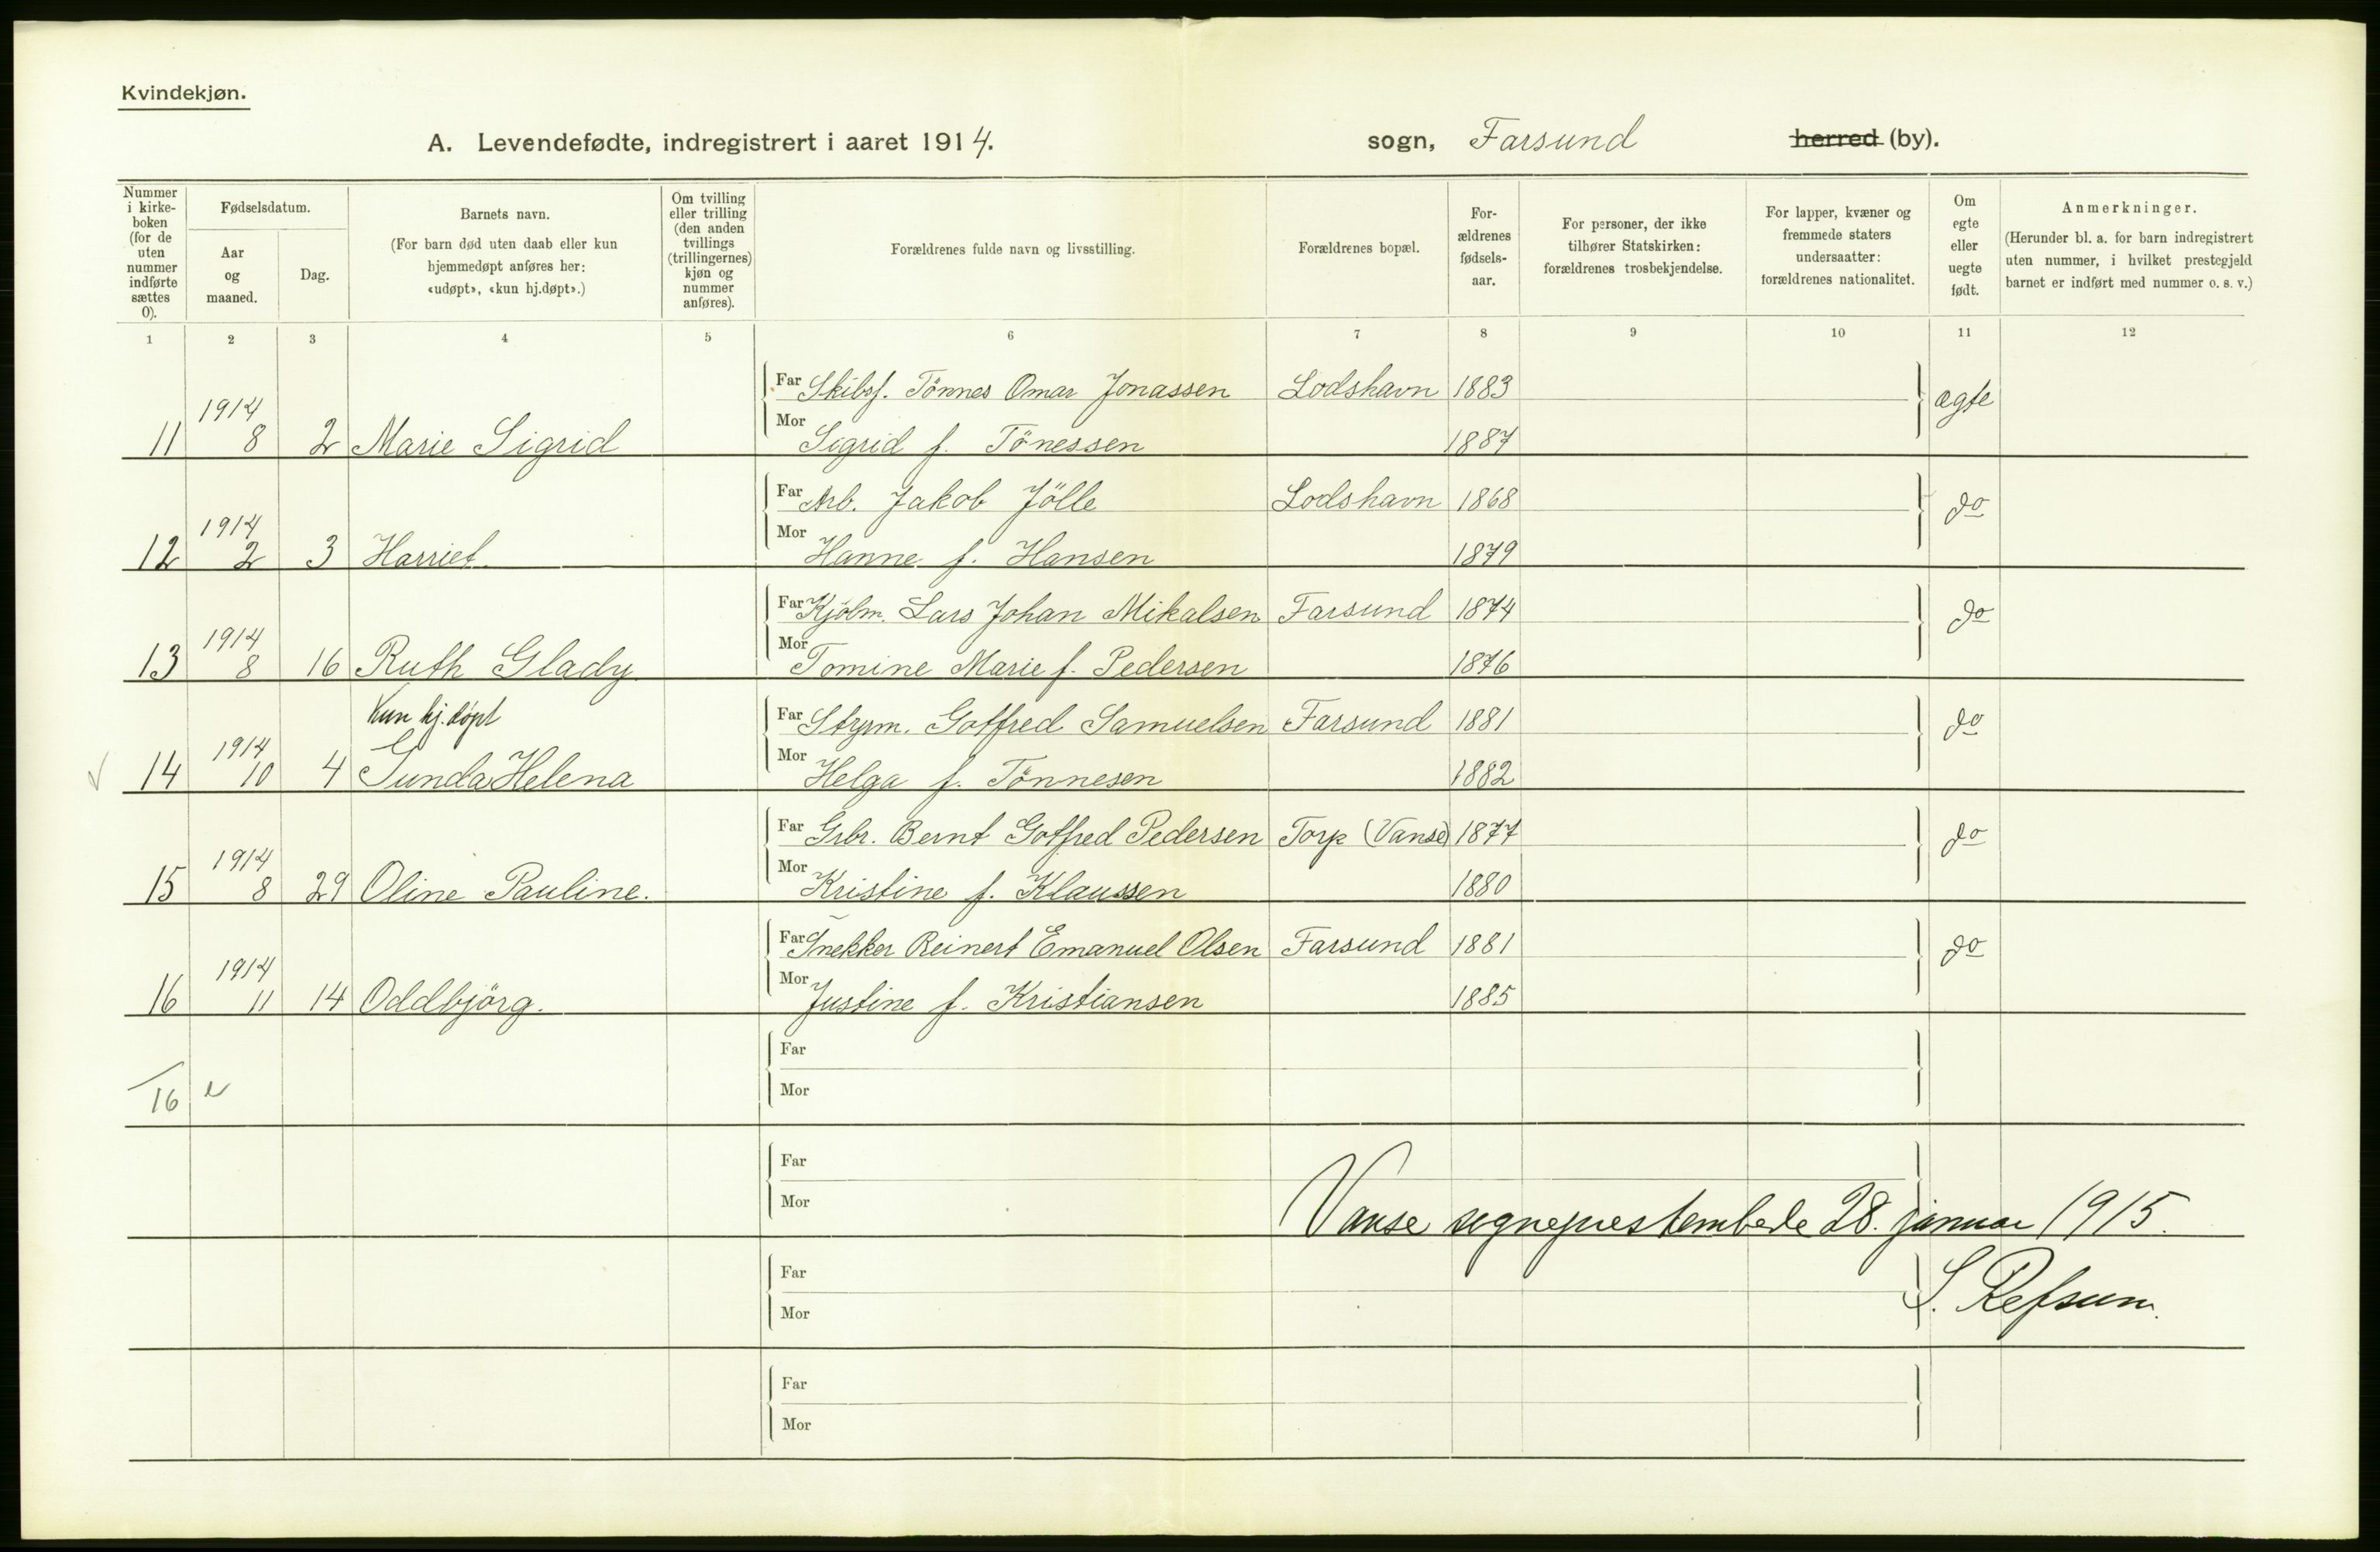 Kvindekjøn.
A. Levendefødte, indregistrert i aaret 1914. sogn, Farsund herred (by).
Nummer i kirke-boken (for de uten nummer indførte sættes 0).
Fødselsdatum.
Aar og maaned.
Dag.
Barnets navn.
(For barn død uten daab eller kun hjemmedøpt anføres her: «udøpt», «kun hj.døpt».)
Om tvilling eller trilling (den anden tvillings (trillingernes) kjøn og nummer anføres).
Forældrenes fulde navn og livsstilling.
Forældrenes bopæl.
For-ældrenes fødsels-aar.
For personer, der ikke tilhører Statskirken: forældrenes trosbekjendelse.
For lapper, kvæner og fremmede staters undersaatter: forældrenes nationalitet.
Om egte eller uegte født.
Anmerkninger.
(Herunder bl. a. for barn indregistrert uten nummer, i hvilket prestegjeld barnet er indført med nummer o. s. v.)
1 2 3 4 5 6 7 8 9 10 11 12
Far Skibsf. Tönnes Omar Jonassen Lodshavn 1883 ægte
11 1914 8 2 Marie Sigrid Mor Sigrid f. Tönessen 1887
Far Arb. Jakob Jölle Lodshavn 1868 do
12 1914 2 3 Harriet. Mor Hanne f. Hansen 1879
Far Kjölm. Lars Johan Mikalsen Farsund 1874 do
13 1914 8 16 Ruth Glady Mor Tomine Marie f. Pedersen 1876
Kun hj.døpt Far Styrm. Gotfred Samuelsen Farsund 1881 do
14 1914 10 4 Gunda Helena Mor Helga f. Tönnesen 1882
Far Grbr. Bernt Gotfred Pedersen Torp (Vanse) 1877 do
15 1914 8 29 Oline Pauline. Mor Kristine f. Klaussen 1880
Far Snekker Reinert Emanuel Olsen Farsund 1881 do
16 1914 11 14 Oddbjörg. Mor Justine f. Kristiansen 1885
Far
16 Mor
Far
Mor
Vanse sogneprestembede 28. januar 1915.
Far
S. Refsum.
Mor
Far
Mor